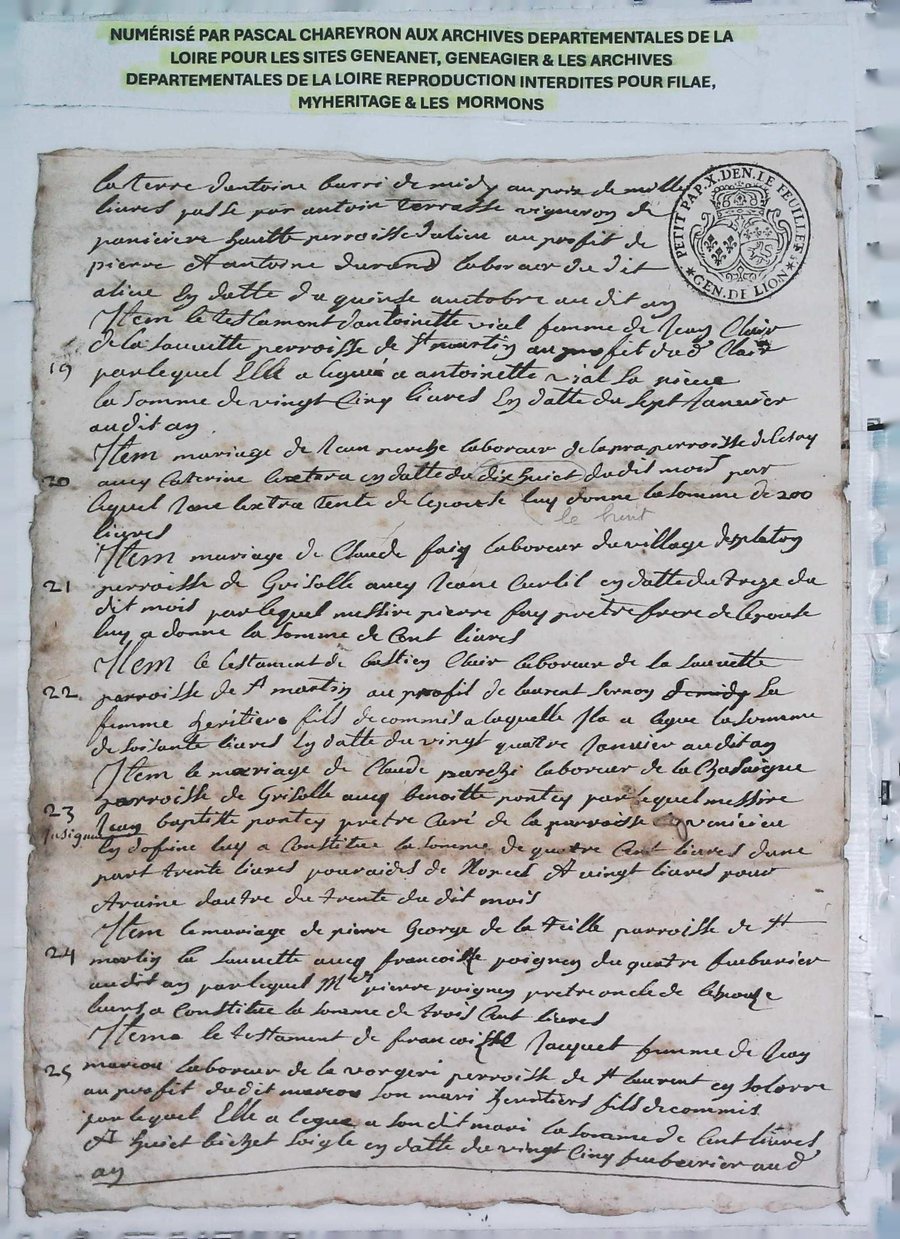 NUMÉRISÉ PAR PASCAL CHAREYRON AUX ARCHIVES DEPARTEMENTALES DE LA
LOIRE POUR LES SITES GENEANET, GENEAGIER & LES ARCHIVES
DEPARTEMENTALES DE LA LOIRE REPRODUCTION INTERDITES POUR FILAE,
MYHERITAGE & LES MORMONS
PETIT PAP. X. DEN. LE FEUILLE
GEN. DE LION
la terre dantoine barri de midy au prix de mille
livres passe par antoin terrasse vigneron de
paniciere hautte perroisse dalieu au profit de
pierre & antoine durand laboreur du dit
alieu en datte du quinse auctobre audit an
Item le testament dantoinette vial femme de Jean Clair
19 de la sauvette perroisse de st martin au profit dud Clair
par lequel Elle a legué a antoinette vial sa niece
la somme de vingt Cinq livres en datte du sept Janvier
audit an
Item mariage de Jean laboreur de la pra perroisse de
20 avecq Caterine en datte du dix huict du dit mois par
lequel de lepouse luy donne la somme de 200
le huit
livres
Item mariage de Claude laboreur du village
21 perroisse de Grisolle avecq Jeane en datte du treze du
dit mois par lequel messire pierre pretre frere de lepouse
luy a donne la somme de Cent livres
Item le testament de bastien Clair laboreur de la sauvette
22 parroisse de st martin au profit de laurent sa
femme heritiere fils de commis a laquelle Il a legue la somme
de soisante livres en datte du vingt quatre Janvier audit an
Item le mariage de Claude laboreur de la Chasaigne
23 parroisse de Grisolle avecq benoitte par lequel messire
Insigné Jean baptiste pretre Curé de la parroisse
en luy a Constitue la somme de quatre Cent livres dune
part trente livres pour de & vingt livres pour
dautre du trente du dit mois
Item le mariage de pierre George de la parroisse de st
24 martin la sauvette avecq francoisse du quatre
audit an par lequel pierre pretre oncle de lepouse
a Constitue la somme de trois Cent livres
Item le testament de francoisse Jacquet femme de Jean
25 marcou laboreur de la perroisse de st laurent en solorre
au profit dudit marcou son mari heritiers fils de commis
par lequel Elle a legue a son dit mari la somme de Cent livres
& huict bichet soigle en datte du vingt Cinq aud
an